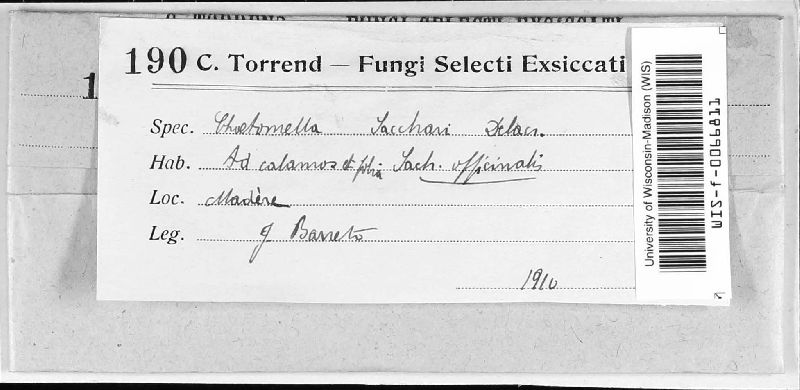 190 C. Torrend — Fungi Selecti Exsiccati
Spec. Chaetomella Sacchari Delacr.
Hab. Ad calamos et folia Sach. officinalis
Loc. Madère
Leg. J Barreto
1910
University of Wisconsin-Madison (WIS)
WIS-f-0066811